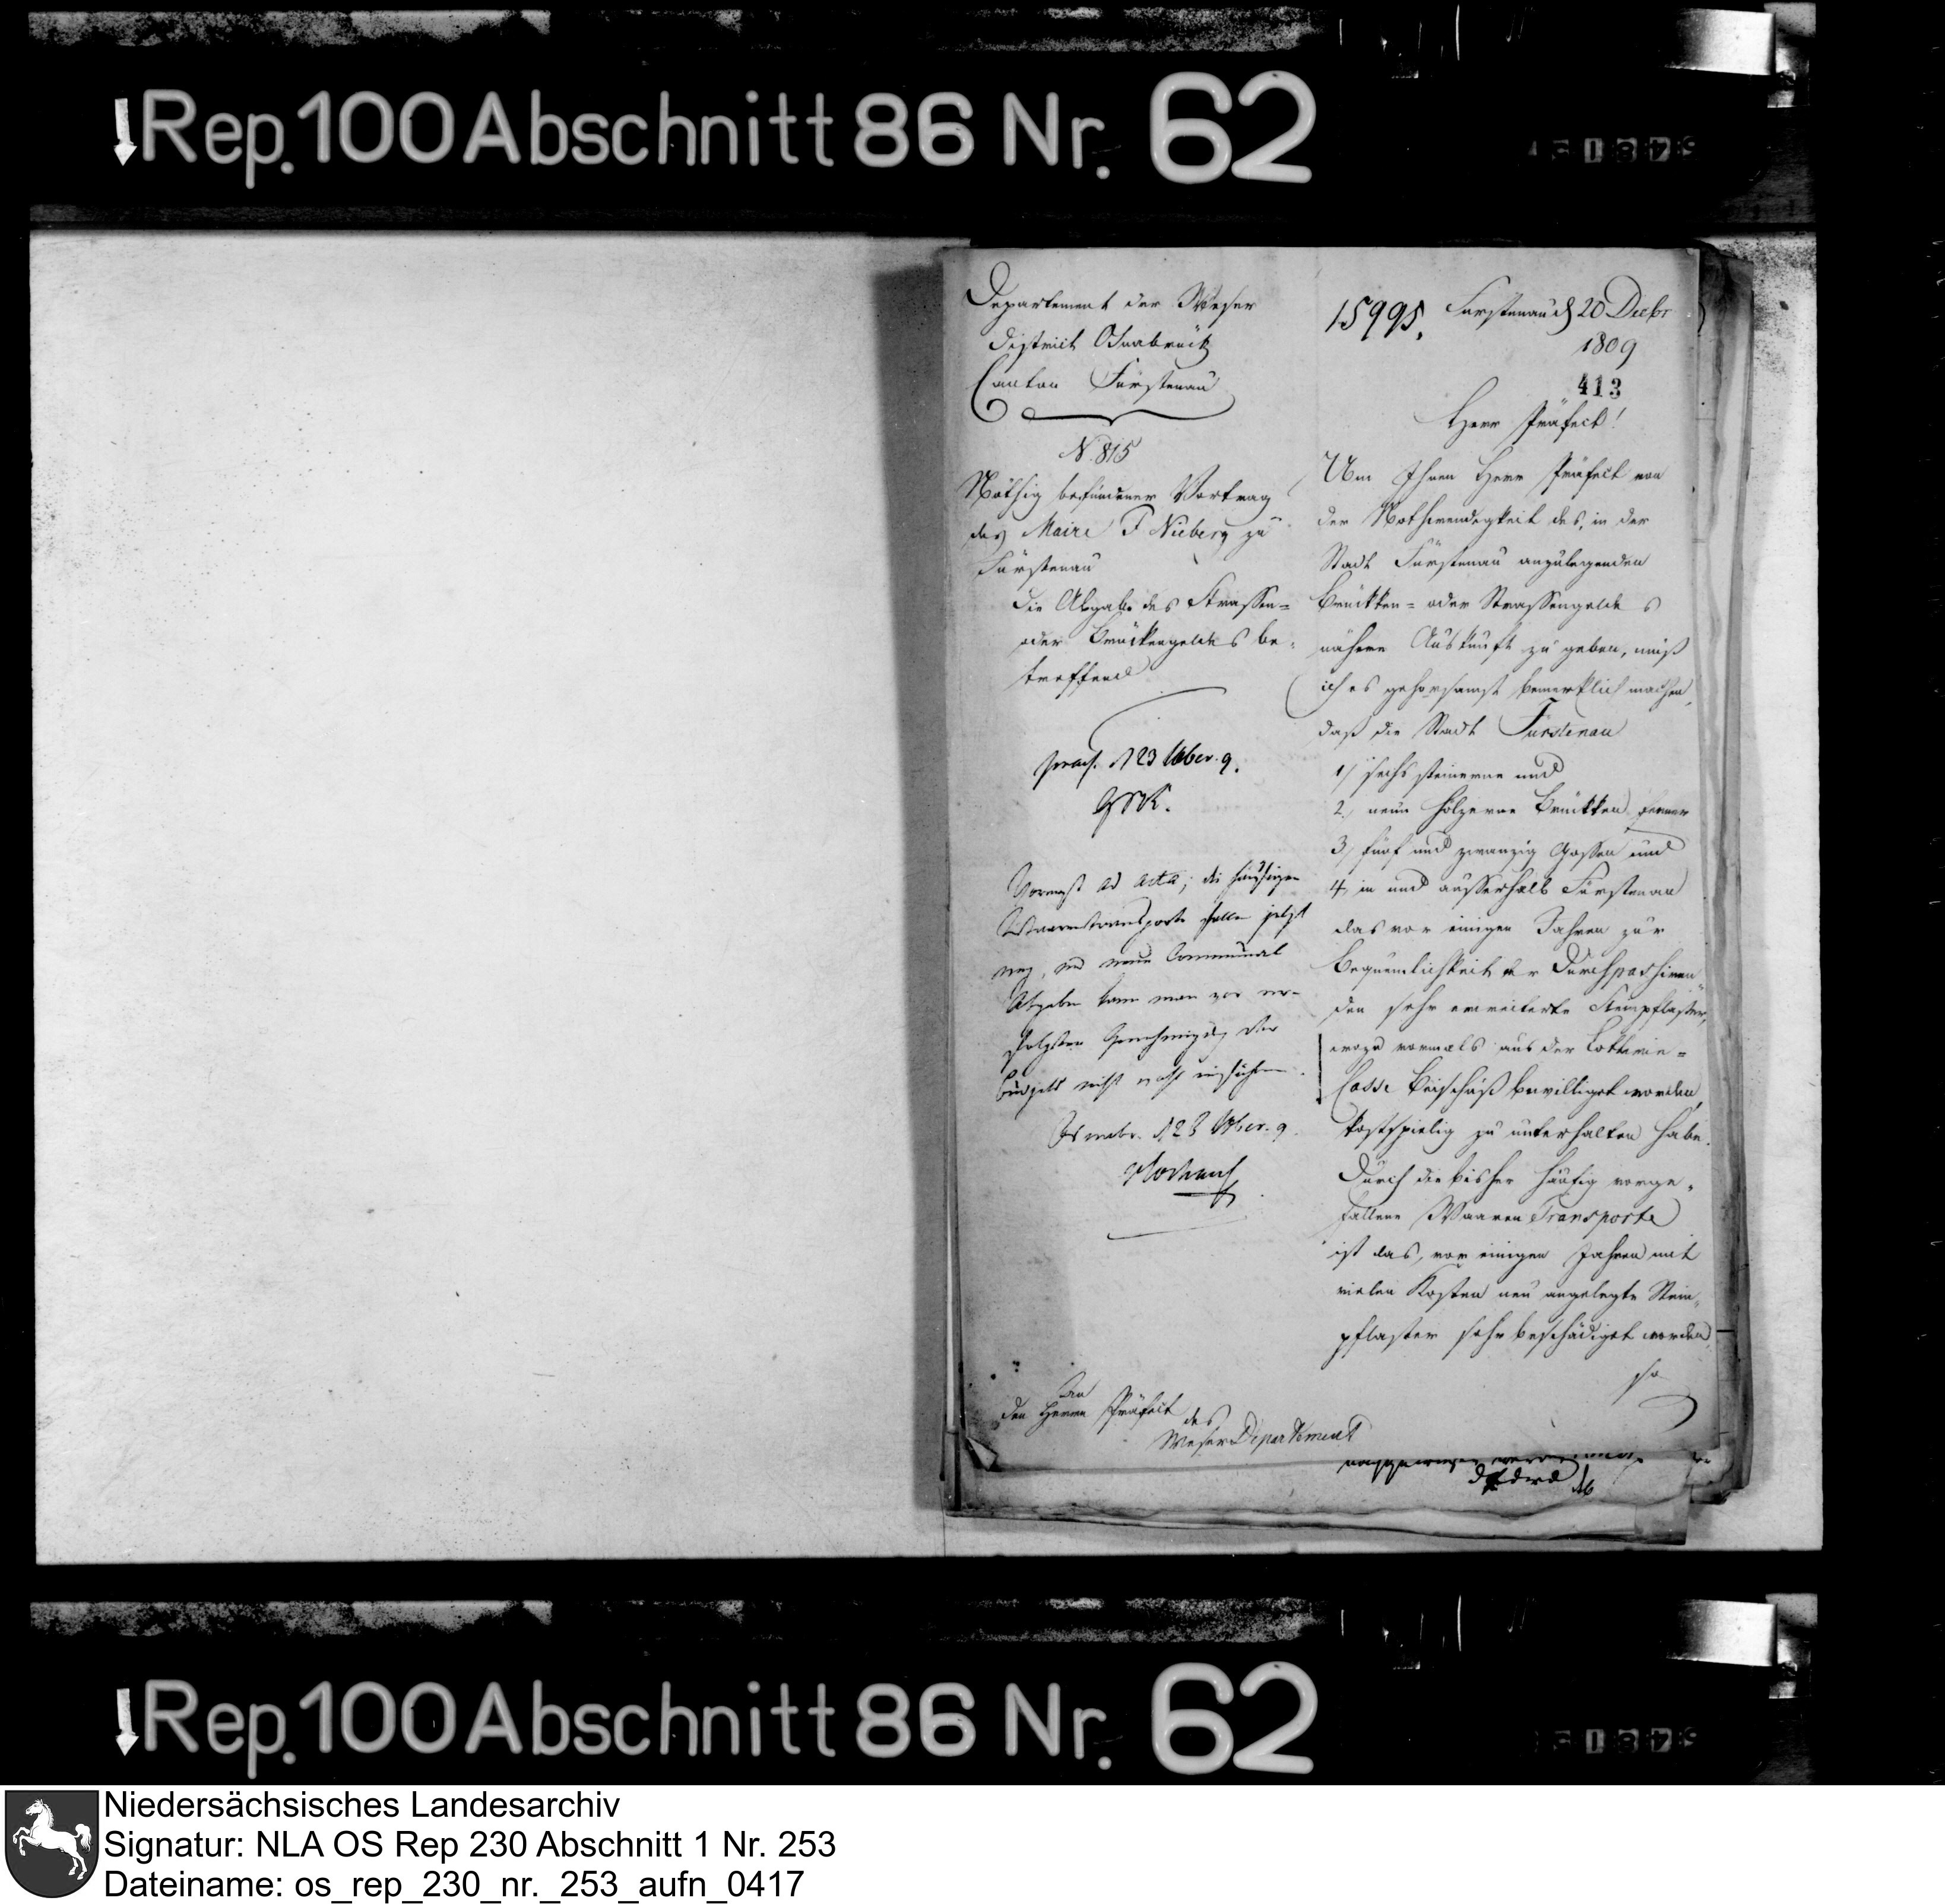 Rep. 100 Abschnitt 86 Nr. 62
Departement der Weser
District Osnabrück
Canton Fürstenau
N. 815
Nöthig befundener Vortrag
des Maire F Nieberg zu
Fürstenau
die Abgabe des Strassen=
oder Brückengeldes be=
treffend
praes. d 23 Xber. 9.
Vorerst ad acta; die häufigen
Waarentransporte fallen jetzt
weg, und neue Communal
Abgaben kann man vor er-
folgter Genehmigung der
Budgets nicht wohl einführen.
Osnabr. d. 23 Xber. 9.
An
den Herrn Präfect des
Weser Departement
15995.
Fürstenau d 20 Decbr
1809
413
Herr Präfect!
Um Ihnen Herr Präfect von
der Nothwendigkeit des, in der
Stadt Fürstenau anzulegenden
Brückken= oder Strassengeldes
nähere Auskunft zu geben, muß
ich es gehorsamst bemerklich machen,
daß die Stadt Fürstenau
1) sechs steinerne und
2) neun hölzerne Brückken ferner
3) fünf und zwanzig Gossen und
4) in und ausserhalb Fürstenau
das vor einigen Jahren zur
Bequemlichkeit der Durchpassiren=
den sehr erweiterte Steinpflaster,
wozu vormals aus der Lotterie=
Casse Beischuß bewilliget worden,
kostspielig zu unterhalten habe.
Durch die bisher häufig vorge=
fallene Waaren Transporte
ist das, vor einigen Jahren mit
vielen Kosten neu angelegte Stein=
pflaster sehr beschädiget worden,
so
Rep. 100 Abschnitt 86 Nr. 62
Niedersächsisches Landesarchiv
Signatur: NLA OS Rep 230 Abschnitt 1 Nr. 253
Dateiname: os_rep_230_nr._253_aufn_0417